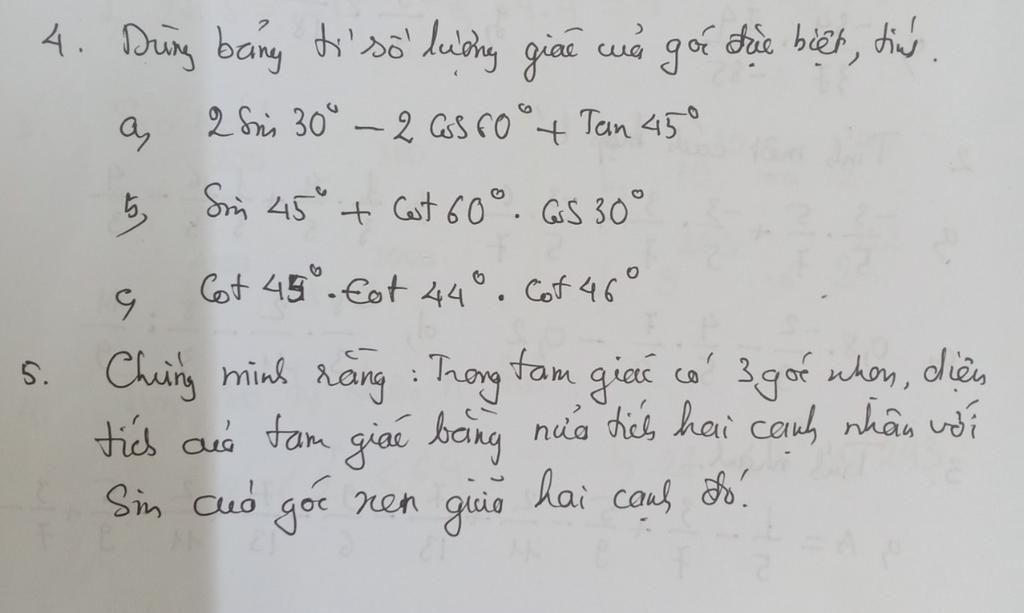 4. Dùng bảng tỉ số lượng giác của góc đặc biệt, tính.
a, 2 Sin 30° - 2 Cos 60° + Tan 45°
b, Sin 45° + Cot 60° . Cos 30°
c, Cot 45° . Cot 44° . Cot 46°
5. Chứng minh rằng : Trong tam giác có 3 góc nhọn, diện
tích của tam giác bằng nửa tích hai cạnh nhân với
Sin của góc xen giữa hai cạnh đó.